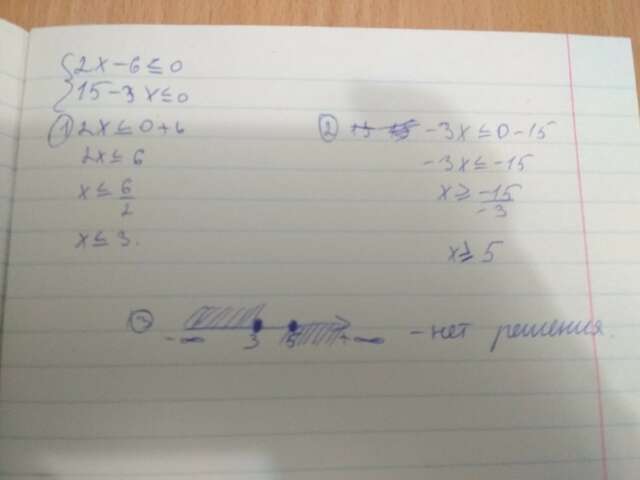 {2x-6≤0
15-3x≤0
① 2x≤0+6
2x≤6
x≤6/2
x≤3.
② -3x≤0-15
-3x≤-15
x≥-15/-3
x≥5
③ -∞ 3 5 +∞ - нет решения.